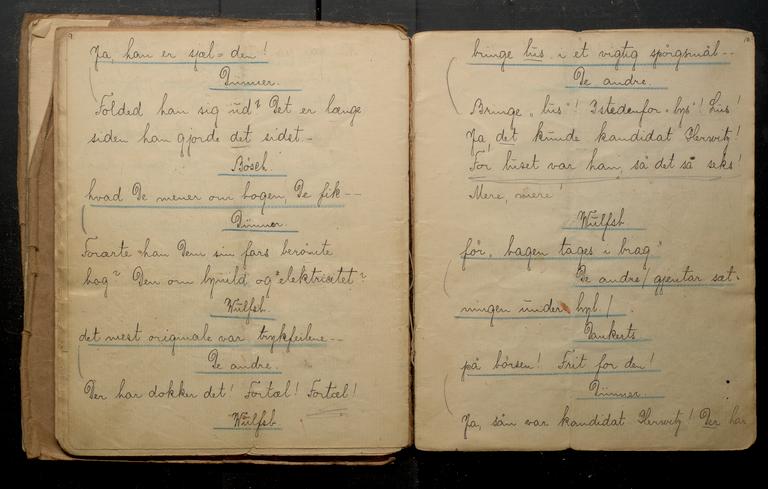 Ja, han er sjæl = den!
Dünner.
Folded han sig ud? Det er længe
siden han gjorde det sidst. –
Bösch.
hvad De mener om bogen, De fik – –
Dünner.
Forærte han Dem sin fars berömte
bog? Den om lynild og elektricitet?
Wulfsb.
det mest originale var trykfeilene – –
De andre.
Der har dokker det! Fortæl! Fortæl!
Wulfsb
bringe lus i et vigtig spörgsmål – –
De andre.
Bringe „lus"! Istedenfor „lys"! Lus!
Ja, det kunde kandidat Herwitz!
For luset var han, så det så seks!
Mere, mere!
Wulfsb
för, hagen tages i brag"
De andre / gjentar sæt-
ningen under hyl /
Dankerts
på börsen! Frit for den!
Dünner.
Ja, sån var kandidat Herwitz! Der har